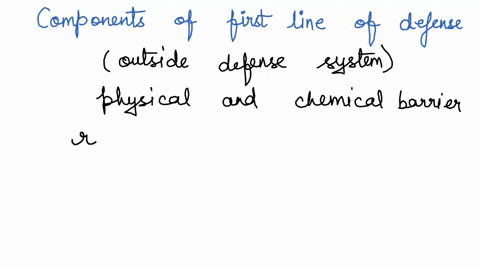 Components of first line of defense
(outside defense system)
physical and chemical barrier
r